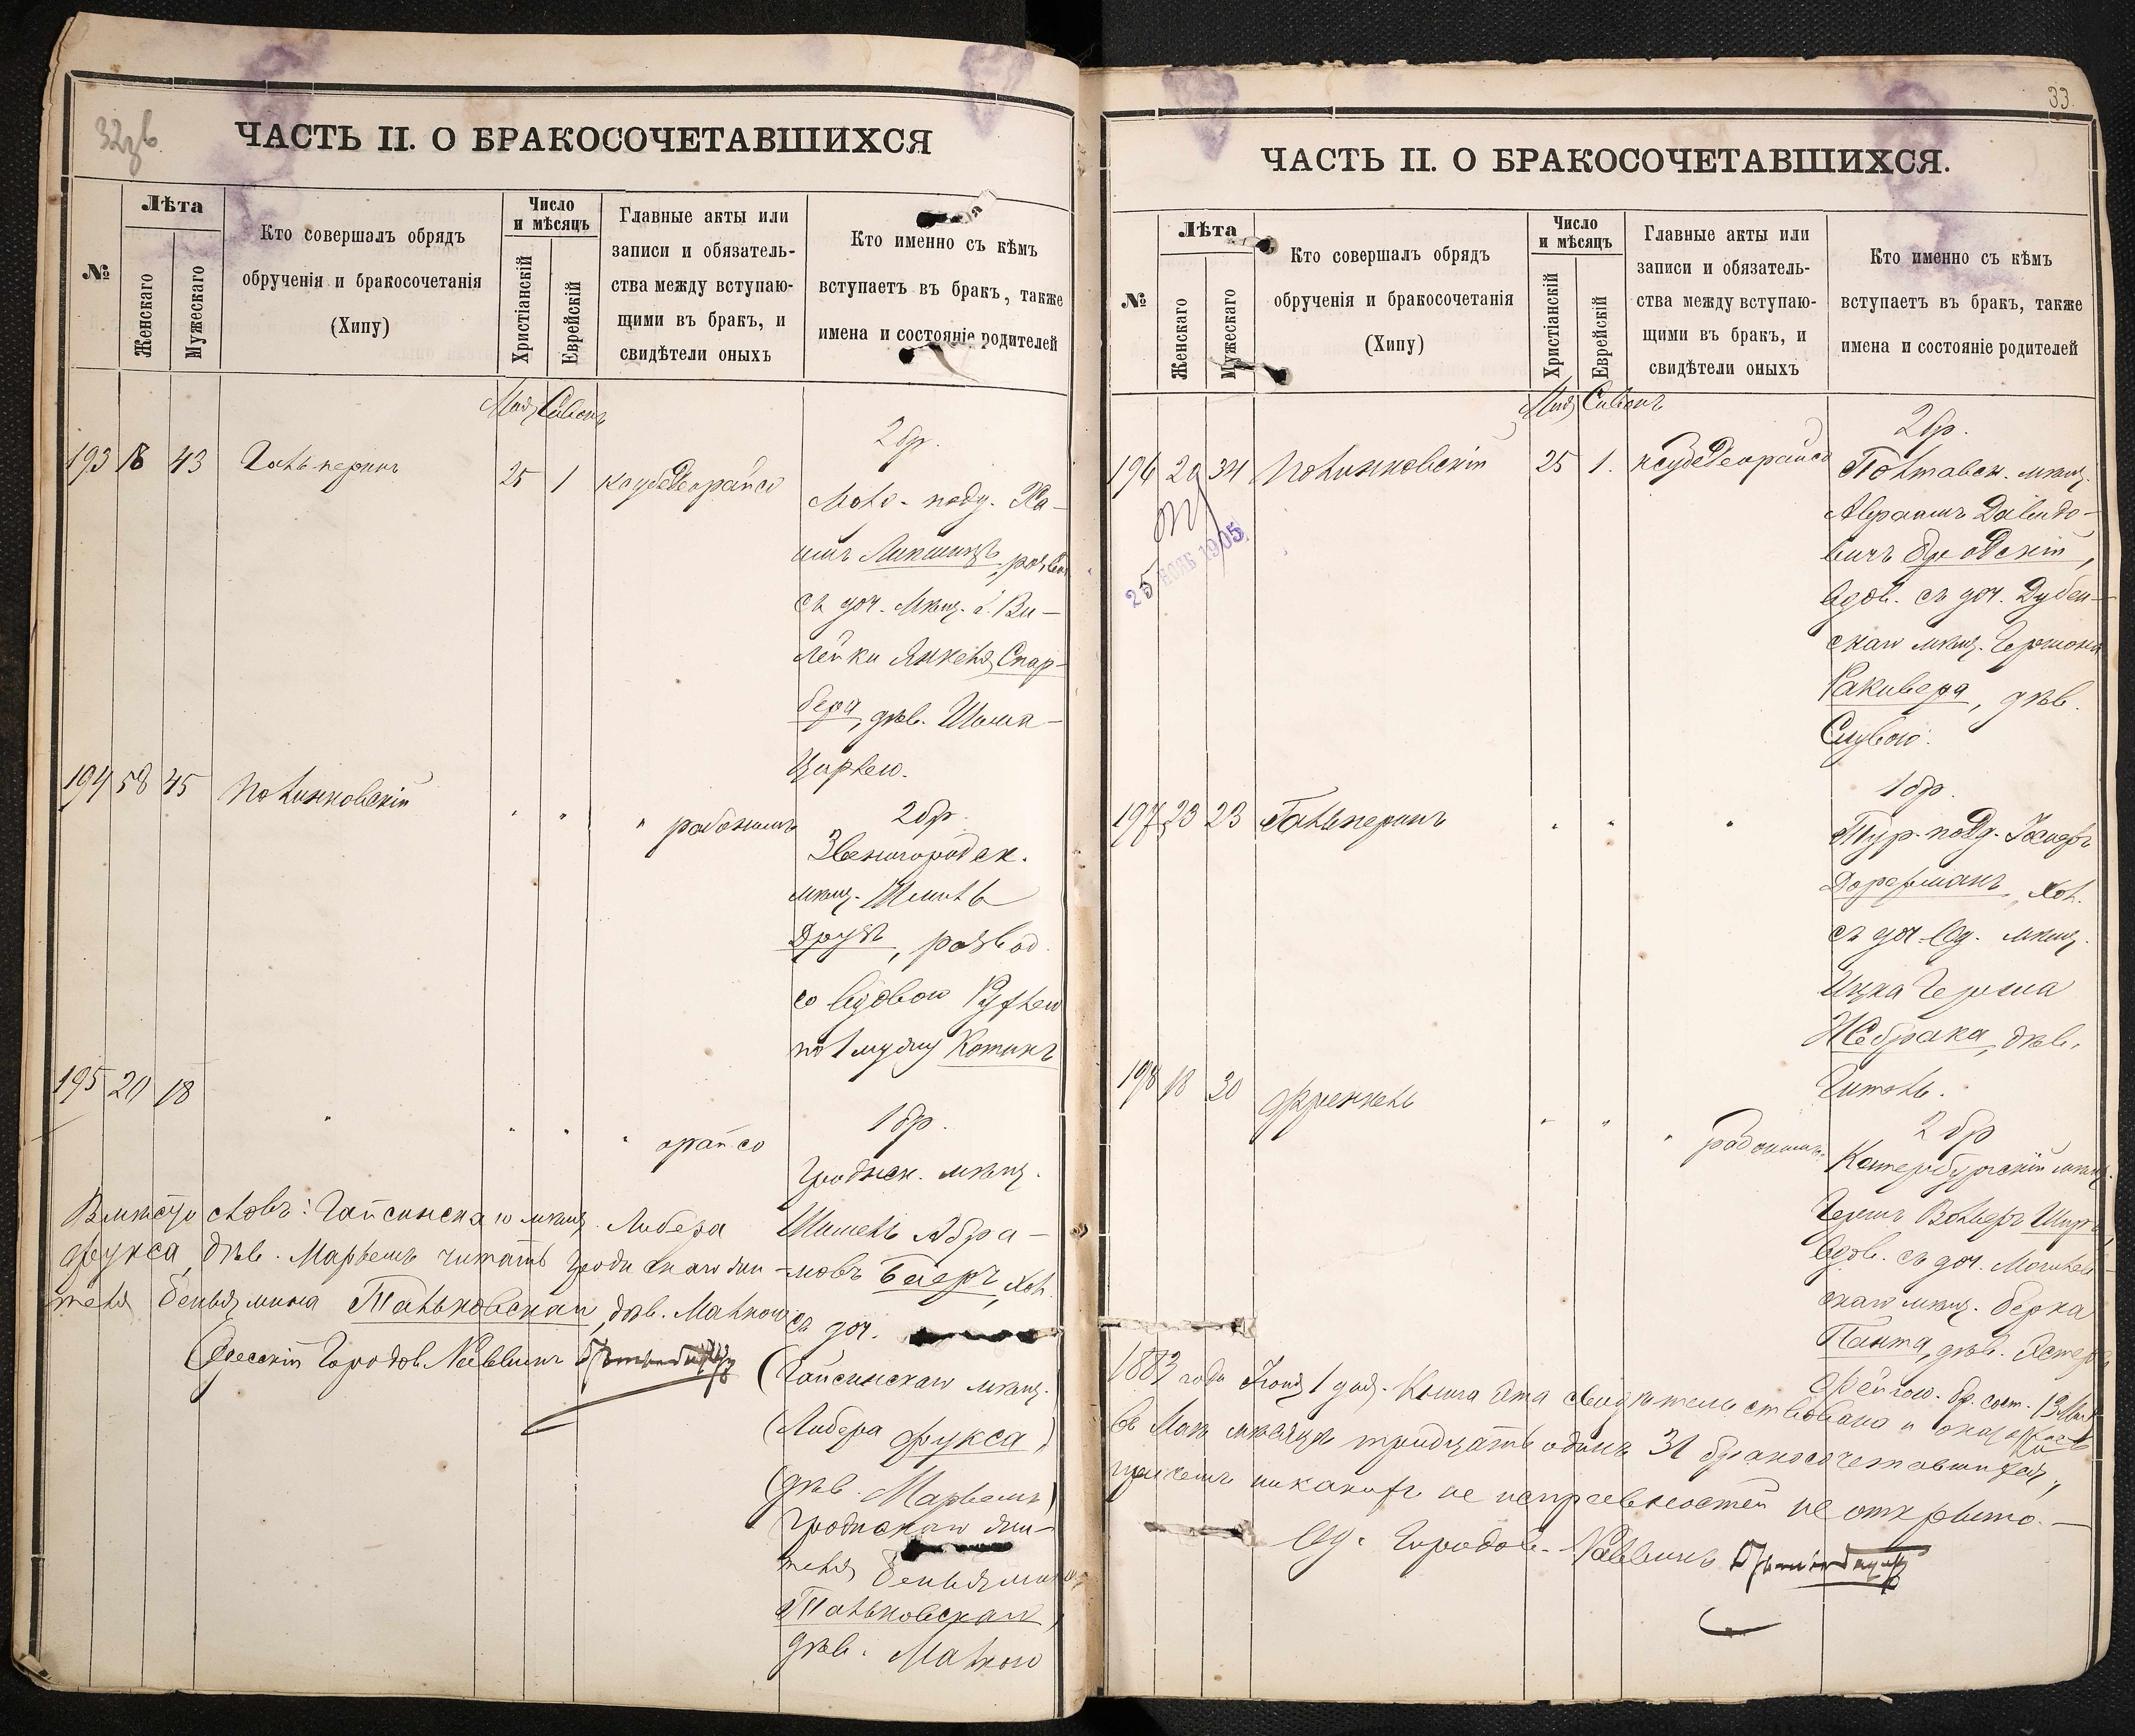 32зв
ЧАСТЬ II. О БРАКОСОЧЕТАВШИХСЯ
№
Лѣта
Женскаго
Мужескаго
Кто совершалъ обрядъ
обрученія и бракосочетанія
(Хипу)
Число
и мѣсяцъ
Христіанскій
Еврейскій
Главные акты или
записи и обязатель-
ства между вступаю-
щими въ бракъ, и
свидѣтели оныхъ
Кто именно съ кѣмъ
вступаетъ въ бракъ, также
имена и состояніе родителей
Мая Сивонъ
193 18 43 Гальперинъ 25 1
2 бр.
съ доч. Мѣщ. г. Ви-
лейки Янкеля Спар-
бера, дѣв. Шима-
Цирлею.
194 58 45 Полинковскій " " "
2 бр.
Звенигородск.
мѣщ. Шмиль
Друзъ, развод.
со вдовою Рухлею
по 1 мужу Котикъ
195 20 18 " " " "
1 бр.
Гродненск. мѣщ.
Шмель Абра-
мовъ Баеръ, хол.
съ доч.
(Гайсинскаго мѣщ.)
(Либера Фукса)
(дѣв. Марьемъ)
Гродскаго жи-
теля Беньямина
Тальковскаго,
дѣв. Малкою
Вмѣсто словъ: Гайсинскаго мѣщ. Либера
Фукса, дѣв. Марьемъ читать Гродскаго жи-
теля Беньямина Тальковскаго, дѣв. Малкою
Одесскій Городов. Раввинъ
33.
ЧАСТЬ II. О БРАКОСОЧЕТАВШИХСЯ.
№
Лѣта
Женскаго
Мужескаго
Кто совершалъ обрядъ
обрученія и бракосочетанія
(Хипу)
Число
и мѣсяцъ
Христіанскій
Еврейскій
Главные акты или
записи и обязатель-
ства между вступаю-
щими въ бракъ, и
свидѣтели оныхъ
Кто именно съ кѣмъ
вступаетъ въ бракъ, также
имена и состояніе родителей
Мая Сивонъ
196 20 34 Полинковскій 25 1.
25 1905
2 бр.
Полтавск. мѣщ.
Авраамъ Давидо-
вичъ Бродскій,
вдов. съ доч. Дубен-
скаго мѣщ. Гершона
Ракивера, дѣв.
197 23 23 Гальперинъ " " "
1 бр.
Тур. подд. Іосифъ
Дорфманъ, хол.
съ доч. Од. мѣщ.
Ицка Герша
Жебрака, дѣв.
Гитель.
198 18 30 Френкель " " "
2 бр
вдов. съ доч. Могилев-
скаго мѣщ. Берка
Панта, дѣв.
1883 года Іюня 1 дня. Книга эта свидѣтельствована и оказалось
въ Маѣ мѣсяцѣ тридцать одинъ 31 бракосочетавшихся,
причемъ никакихъ не исправностей не открыто.
Од. Городов. Раввинъ